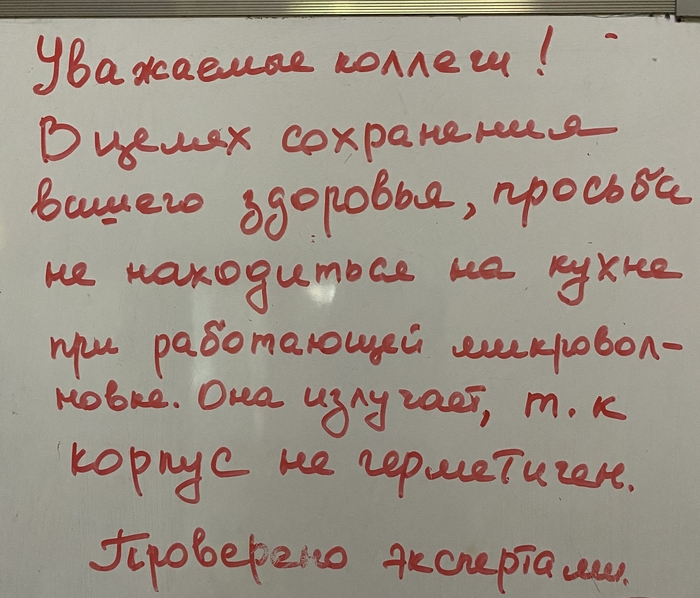 Уважаемые коллеги!
В целях сохранения
вашего здоровья, просьба
не находиться на кухне
при работающей микровол-
новке. Она излучает, т.к
корпус не герметичен.
Проверено экспертами.